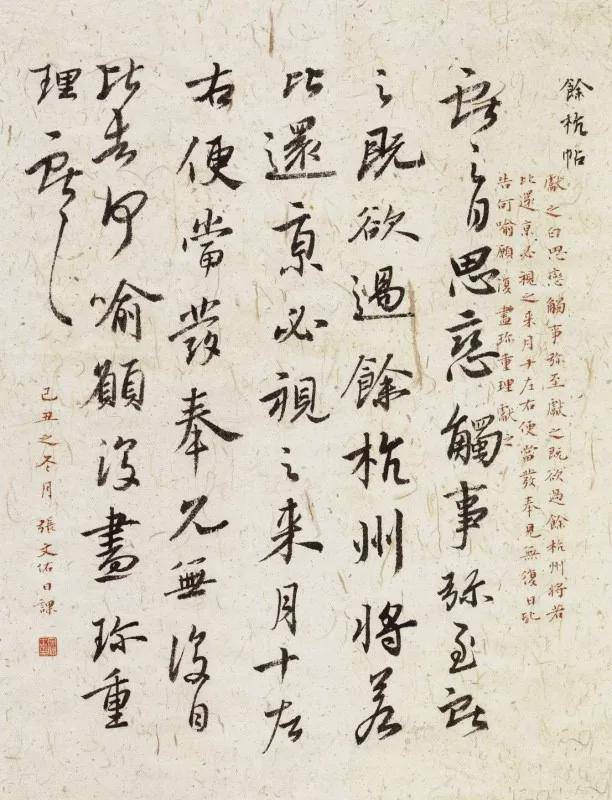 餘杭帖
獻之白思戀觸事弥至獻之既欲過餘杭州將若
比還京必視之来月十左右便當發奉見無復日比
告何喻願復盡珍重理獻之
獻之白思戀觸事弥至獻
之既欲過餘杭州將若
比還京必視之来月十左
右便當發奉見無復日
比告何喻願復盡珍重
理獻之
己丑之冬月 張文佑日課